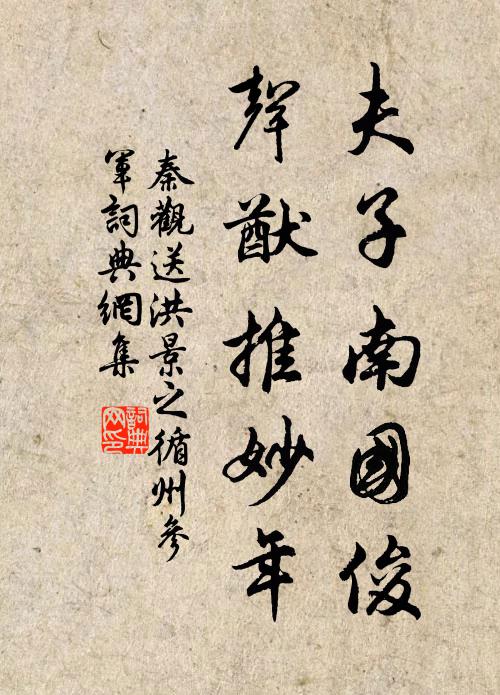 夫子南國俊
聲猷推妙年
秦觀送洪景之循州參
軍詞典網集
詞典
网印